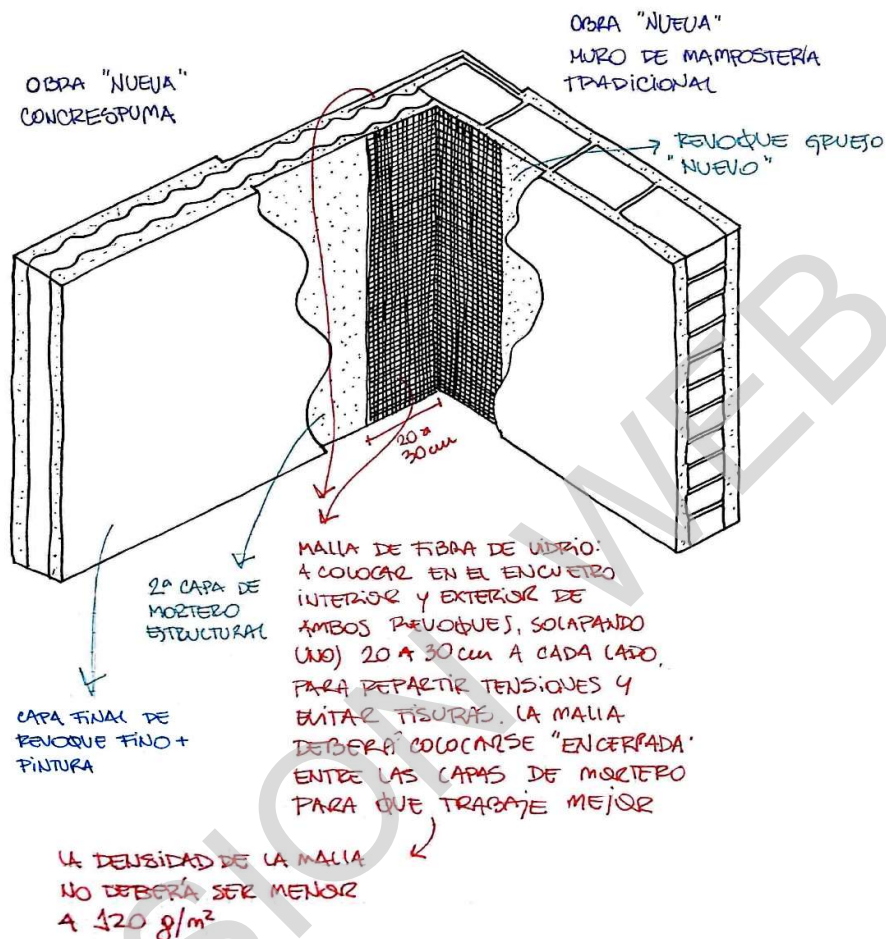 OBRA "NUEVA"
CONCRESPUMA
OBRA "NUEVA"
MURO DE MAMPOSTERÍA
TRADICIONAL
REVOQUE GRUESO
"NUEVO"
20 a
30 cm
2ª CAPA DE
MORTERO
ESTRUCTURAL
CAPA FINAL DE
REVOQUE FINO +
PINTURA
MALLA DE FIBRA DE VIDRIO:
A COLOCAR EN EL ENCUETRO
INTERIOR Y EXTERIOR DE
AMBOS REVOQUES, SOLAPANDO
UNOS 20 A 30 cm A CADA LADO,
PARA REPARTIR TENSIONES Y
EVITAR FISURAS. LA MALLA
DEBERÁ COLOCARSE "ENCERRADA"
ENTRE LAS CAPAS DE MORTERO
PARA QUE TRABAJE MEJOR
LA DENSIDAD DE LA MALLA
NO DEBERÍA SER MENOR
A 120 g/m²
SION WEB